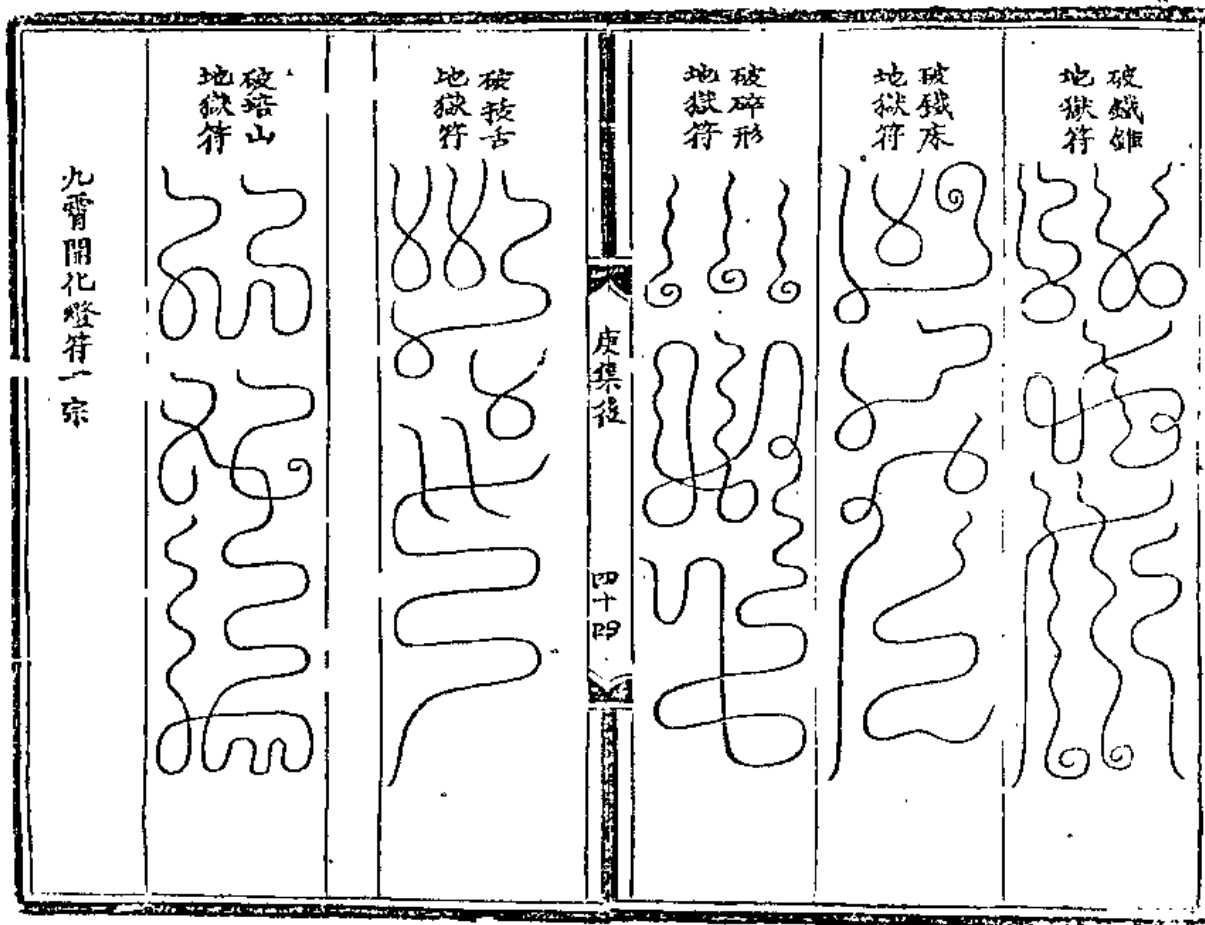 破鐵錐
地獄符
破鐵床
地獄符
破碎形
地獄符
庚集後
四十四
破拔舌
地獄符
山
破
地獄符
九霄開化燈符一宗